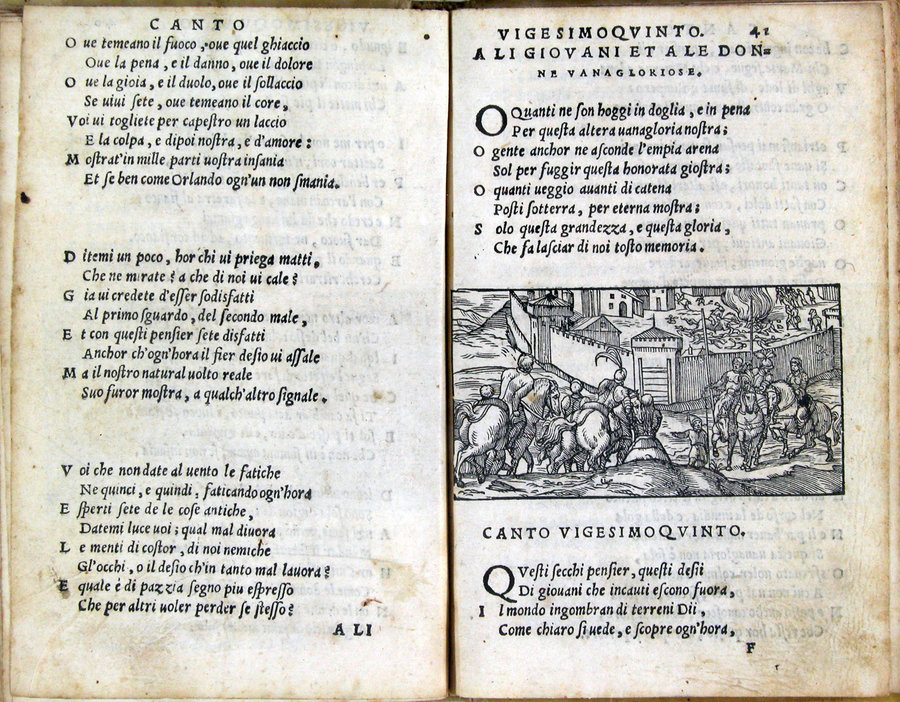 CANTO
O ue temeano il fuoco, oue quel ghiaccio
Oue la pena, e il danno, oue il dolore
O ue la gioia, e il duolo, oue il sollaccio
Se uiui sete, oue temeano il core,
V oi ui togliete per capestro un laccio
E la colpa, e dipoi nostra, e d'amore:
M ostrat'in mille parti uostra insania
Et se ben come Orlando ogn'un non smania.
D itemi un poco, hor chi ui priega matti,
Che ne mirate? a che di noi ui cale?
G ia ui credete d'esser sodisfatti
Al primo sguardo, del secondo male,
E t con questi pensier sete disfatti
Anchor ch'ogn'hora il fier desio ui assale
M a il nostro natural uolto reale
Suo furor mostra, a qualch'altro signale.
V oi che non date al uento le fatiche
Ne quinci, e quindi, faticando ogn'hora
E sperti sete de le cose antiche,
Datemi luce uoi; qual mal diuora
L e menti di costor, di noi nemiche
Gl'occhi, o il desio ch'in tanto mal lauora?
E quale è di pazzia segno piu espresso
Che per altri uoler perder se stesso?
ALI
VIGESIMOQVINTO. 41
ALI GIOVANI ET A LE DON=
NE VANAGLORIOSE.
O Quanti ne son hoggi in doglia, e in pena
Per questa altera uanagloria nostra;
O gente anchor ne asconde l'empia arena
Sol per fuggir questa honorata giostra;
O quanti ueggio auanti di catena
Posti sotterra, per eterna mostra;
S olo questa grandezza, e questa gloria,
Che fa lasciar di noi tosto memoria.
CANTO VIGESIMOQVINTO.
QVesti secchi pensier, questi desii
Di giouani che incauti escono fuora,
I l mondo ingombran di terreni Dii,
Come chiaro si uede, e scopre ogn'hora,
F